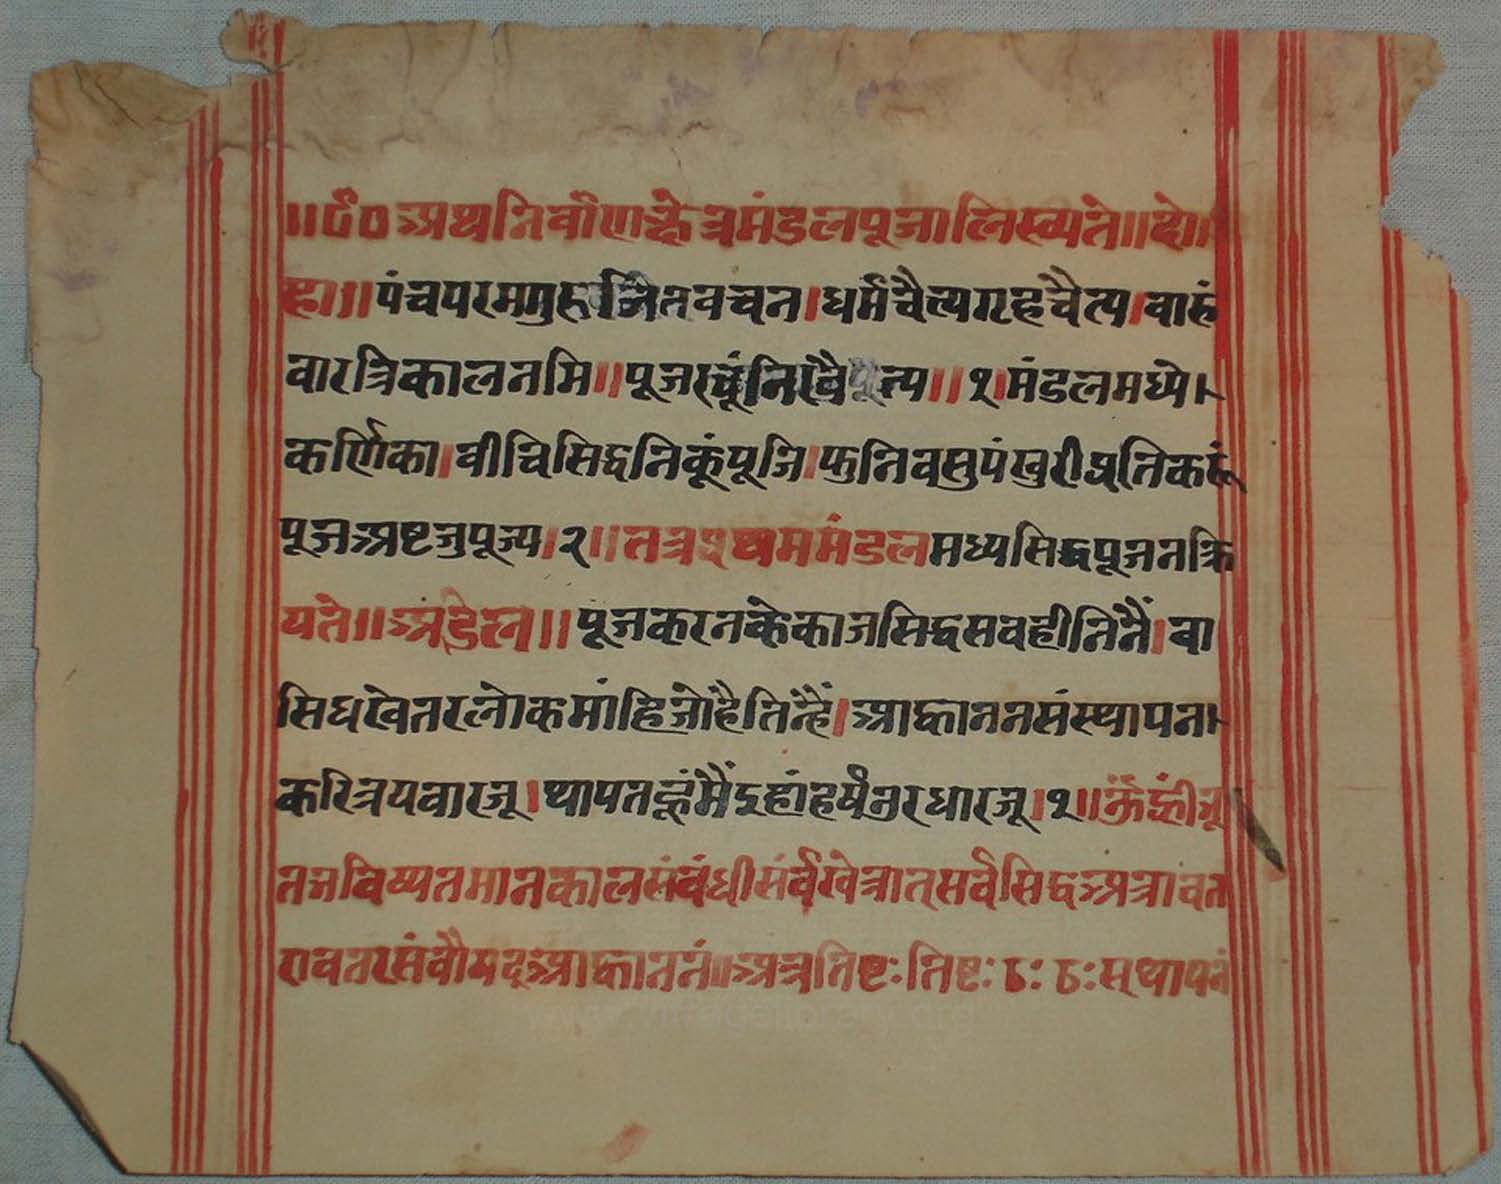 ॥ ၆० अथ निर्वाण क्षेत्र मंडल पूजा लिख्यते ॥ दो॥
हा ॥ पंच परम गुरु जैन वचन । धर्म चैत्यगृह चैत्य । वारुं
वार त्रिकाल नमि ॥ पूज रचूं नि त्य ॥ १। मंडल मध्ये।
कर्णिका । वीचि सिद्धनि कूं पूजि । फुनि वसु पंखुरी प्रति करूं
पूज अष्ट जु पूज्य । २॥ तत्र प्रथम मंडल मध्य सिद्ध पूजन क्रि
यते ॥ अडेल ॥ पूज करन के काज सिद्ध सवही तिनैं । वा
सिध खेतर लोक मांहि जो है तिन्हैं । आह्वानन संस्थापना।
करि त्रय वार जू । थापत हूं मैं इहां हर्ष उर धार जू । १॥ ॐ ह्रीं भू
त भविष्यतमान काल संबंधी सर्व खेत्रात् सर्व सिद्ध अत्रावत
रावतर संवौषट् आह्वाननं ॥ अत्र तिष्टः तिष्टः ठः ठः स्थापनं